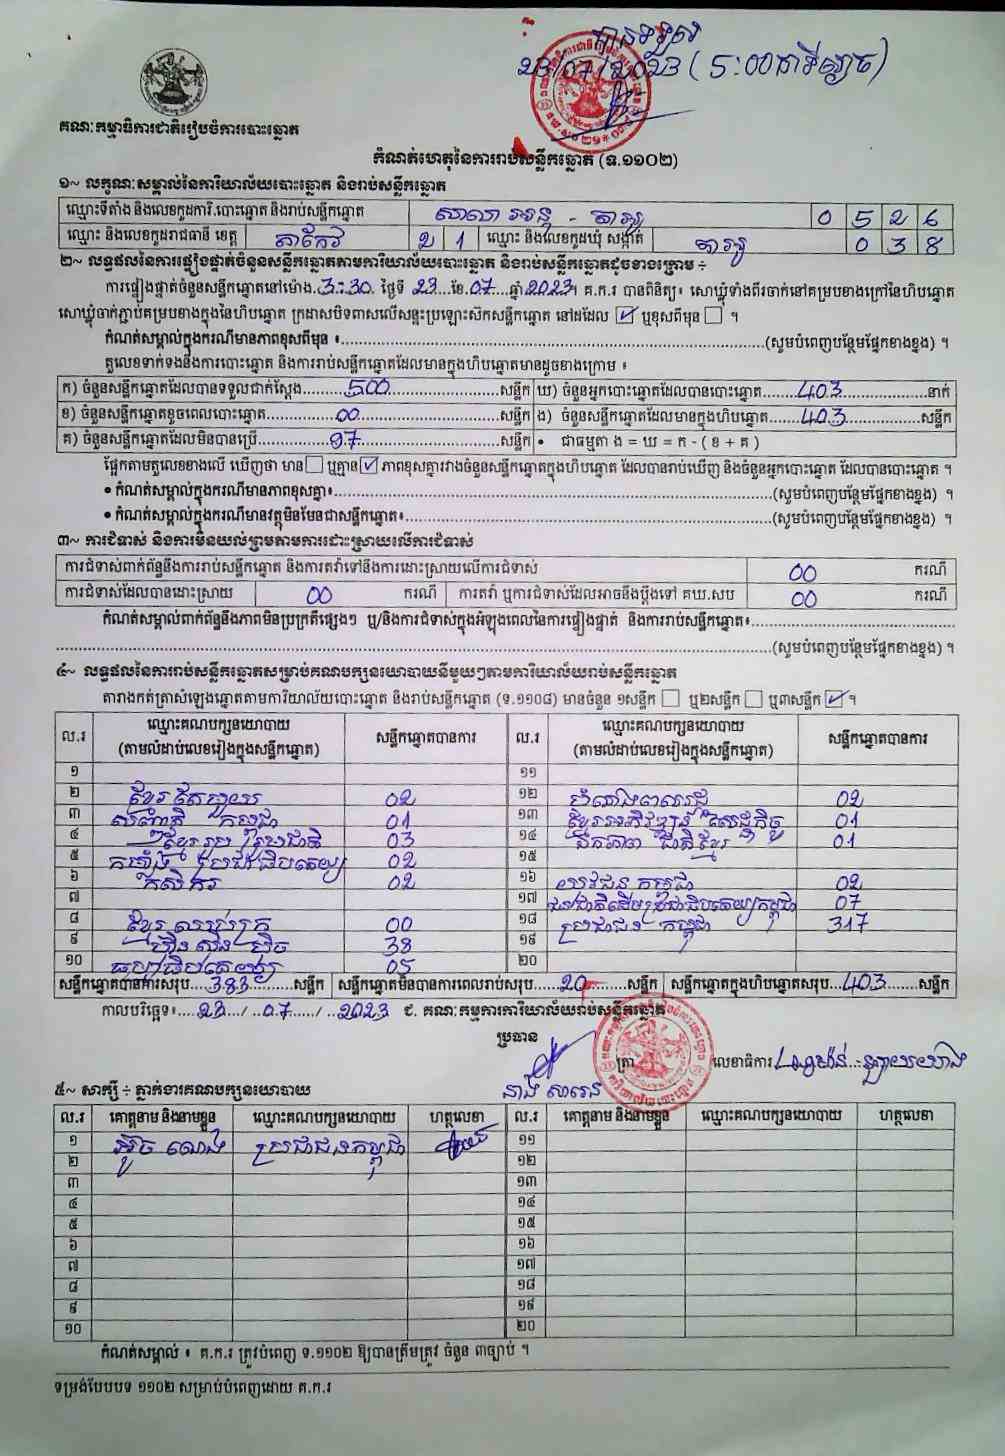 បានទទួល
23/07/2023 (5:00នាទីល្ងាច)
គណៈកម្មាធិការជាតិរៀបចំការបោះឆ្នោត
កំណត់ហេតុនៃការរាប់សន្លឹកឆ្នោត (ទ.១១០២)
១~ លក្ខណៈសម្គាល់នៃការិយាល័យបោះឆ្នោត និងរាប់សន្លឹកឆ្នោត
ឈ្មោះទីតាំង និងលេខកូដការិ.បោះឆ្នោត និងរាប់សន្លឹកឆ្នោត 0 5 2 6
ឈ្មោះ និងលេខកូដរាជធានី ខេត្ត តាកែវ 2 1 ឈ្មោះ និងលេខកូដឃុំ សង្កាត់ 0 3 8
២~ លទ្ធផលនៃការផ្ទៀងផ្ទាត់ចំនួនសន្លឹកឆ្នោតតាមការិយាល័យបោះឆ្នោត និងរាប់សន្លឹកឆ្នោតដូចខាងក្រោម ÷
ការផ្ទៀងផ្ទាត់ចំនួនសន្លឹកឆ្នោតនៅម៉ោង.3:30. ថ្ងៃទី 23...ខែ.07....ឆ្នាំ 2023។ គ.ក.រ បានពិនិត្យ៖ សោឃ្លុំទាំងពីរចាក់នៅគម្របខាងក្រៅនៃហិបឆ្នោត
សោឃ្លុំចាក់ភ្ជាប់គម្របខាងក្នុងនៃហិបឆ្នោត ក្រដាសបិទពាសលើសន្ទះប្រឡោះសឹកសន្លឹកឆ្នោត នៅដដែល ☑ ឬខុសពីមុន ☐ ។
កំណត់សម្គាល់ក្នុងករណីមានភាពខុសពីមុន ៖.....(សូមបំពេញបន្ថែមផ្នែកខាងខ្នង) ។
តួលេខទាក់ទងនឹងការបោះឆ្នោត និងការរាប់សន្លឹកឆ្នោតដែលមានក្នុងហិបឆ្នោតមានដូចខាងក្រោម ៖
ក) ចំនួនសន្លឹកឆ្នោតដែលបានទទួលជាក់ស្តែង.....500.....សន្លឹក ឃ) ចំនួនអ្នកបោះឆ្នោតដែលបានបោះឆ្នោត.....403.....នាក់
ខ) ចំនួនសន្លឹកឆ្នោតខូចពេលបោះឆ្នោត.....00.....សន្លឹក ង) ចំនួនសន្លឹកឆ្នោតដែលមានក្នុងហិបឆ្នោត.....403.....សន្លឹក
គ) ចំនួនសន្លឹកឆ្នោតដែលមិនបានប្រើ.....97.....សន្លឹក • ជាធម្មតា ង = ឃ = ក - ( ខ + គ )
ផ្អែកតាមតួលេខខាងលើ ឃើញថា មាន ☐ ឬគ្មាន ☑ ភាពខុសគ្នារវាងចំនួនសន្លឹកឆ្នោតក្នុងហិបឆ្នោត ដែលបានរាប់ឃើញ និងចំនួនអ្នកបោះឆ្នោត ដែលបានបោះឆ្នោត ។
• កំណត់សម្គាល់ក្នុងករណីមានភាពខុសគ្នា៖.....(សូមបំពេញបន្ថែមផ្នែកខាងខ្នង) ។
• កំណត់សម្គាល់ក្នុងករណីមានវត្ថុមិនមែនជាសន្លឹកឆ្នោត៖.....(សូមបំពេញបន្ថែមផ្នែកខាងខ្នង) ។
៣~ ការជំទាស់ និងការមិនយល់ព្រមតាមការដោះស្រាយលើការជំទាស់
ការជំទាស់ពាក់ព័ន្ធនឹងការរាប់សន្លឹកឆ្នោត និងការតវ៉ាទៅនឹងការដោះស្រាយលើការជំទាស់ 00 ករណី
ការជំទាស់ដែលបានដោះស្រាយ 00 ករណី ការតវ៉ា ឬការជំទាស់ដែលអាចនឹងប្តឹងទៅ គឃ.សប 00 ករណី
កំណត់សម្គាល់ពាក់ព័ន្ធនឹងភាពមិនប្រក្រតីផ្សេងៗ ឬ/និងការជំទាស់ក្នុងអំឡុងពេលនៃការផ្ទៀងផ្ទាត់ និងការរាប់សន្លឹកឆ្នោត៖.....
.....(សូមបំពេញបន្ថែមផ្នែកខាងខ្នង) ។
៤~ លទ្ធផលនៃការរាប់សន្លឹកឆ្នោតសម្រាប់គណបក្សនយោបាយនីមួយៗតាមការិយាល័យរាប់សន្លឹកឆ្នោត
តារាងកត់ត្រាសំឡេងឆ្នោតតាមការិយាល័យបោះឆ្នោត និងរាប់សន្លឹកឆ្នោត (ទ.១១០៨) មានចំនួន ១សន្លឹក ☐ ឬ២សន្លឹក ☐ ឬ៣សន្លឹក ☑ ។
ល.រ ឈ្មោះគណបក្សនយោបាយ (តាមលំដាប់លេខរៀងក្នុងសន្លឹកឆ្នោត) សន្លឹកឆ្នោតបានការ ល.រ ឈ្មោះគណបក្សនយោបាយ (តាមលំដាប់លេខរៀងក្នុងសន្លឹកឆ្នោត) សន្លឹកឆ្នោតបានការ
១ ១១
២ ខ្មែរតែមួយ 02 ១២ 02
៣ កម្ពុជា 01 ១៣ ខ្មែរអភិវឌ្ឍន៍ សេដ្ឋកិច្ច 01
៤ ខ្មែររួបរួមជាតិ 03 ១៤ ឯកភាពជាតិខ្មែរ 01
៥ កម្លាំងប្រជាធិបតេយ្យ 02 ១៥
៦ កសិករ 02 ១៦ យុវជនកម្ពុជា 02
៧ ១៧ ជនជាតិដើមប្រជាធិបតេយ្យកម្ពុជា 07
៨ ខ្មែរឈប់ក្រ 00 ១៨ ប្រជាជនកម្ពុជា 317
៩ ហ៊្វុនស៊ិនប៉ិច 38 ១៩
១០ 05 ២០
សន្លឹកឆ្នោតបានការសរុប...383.....សន្លឹក សន្លឹកឆ្នោតមិនបានការពេលរាប់សរុប.....20.....សន្លឹក សន្លឹកឆ្នោតក្នុងហិបឆ្នោតសរុប...403.....សន្លឹក
កាលបរិច្ឆេទ៖....23.../..07...../..2023 ជ. គណៈកម្មការការិយាល័យរាប់សន្លឹកឆ្នោត
ប្រធាន
ត្រា លេខាធិការ
៥~ សាក្សី ÷ ភ្នាក់ងារគណបក្សនយោបាយ
ល.រ គោត្តនាម និងនាមខ្លួន ឈ្មោះគណបក្សនយោបាយ ហត្ថលេខា ល.រ គោត្តនាម និងនាមខ្លួន ឈ្មោះគណបក្សនយោបាយ ហត្ថលេខា
១ ប្រជាជនកម្ពុជា ១១
២ ១២
៣ ១៣
៤ ១៤
៥ ១៥
៦ ១៦
៧ ១៧
៨ ១៨
៩ ១៩
១០ ២០
កំណត់សម្គាល់ ៖ គ.ក.រ ត្រូវបំពេញ ទ.១១០២ ឱ្យបានត្រឹមត្រូវ ចំនួន ៣ច្បាប់ ។
ទម្រង់បែបបទ ១១០២ សម្រាប់បំពេញដោយ គ.ក.រ